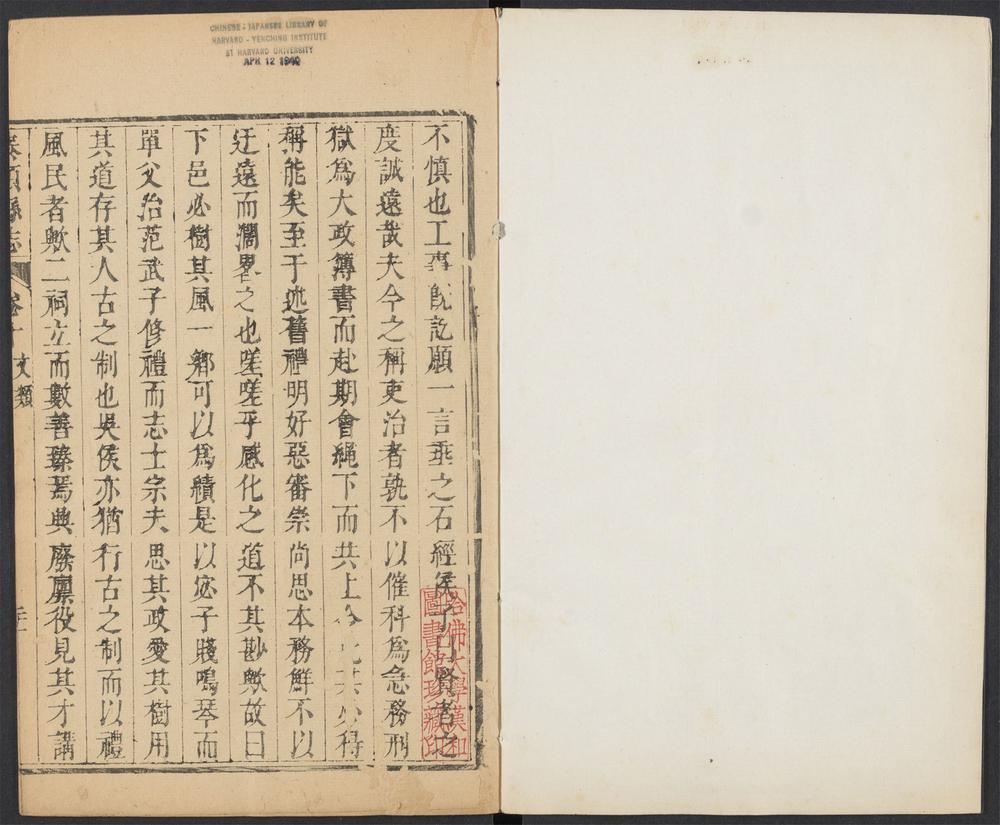 CHINESE - JAPANESE LIBRARY OF
HARVARD - YENCHING INSTITUTE
AT HARVARD UNIVERSITY
APR 12 1940
不慎也工事旣訖願一言垂之石經侯子曰賢者之
度誠遠哉夫今之稱吏治者孰不以催科爲急務刑
獄爲大政簿書而赴期會繩下而共上令此其必得
稱能矣至于述舊禮明好惡審崇尚思本務鮮不以
迂遠而濶畧之也嗟嗟乎感化之道不其尠歟故曰
下邑必樹其風一鄉可以爲績是以宓子賤鳴琴而
單父治范武子修禮而志士宗夫思其政愛其樹用
其道存其人古之制也吳侯亦猶行古之制而以禮
風民者歟二祠立而數善臻焉典廢廩役見其才講
縣志
卷十 文類
哈佛大學漢和
圖書館珍藏印